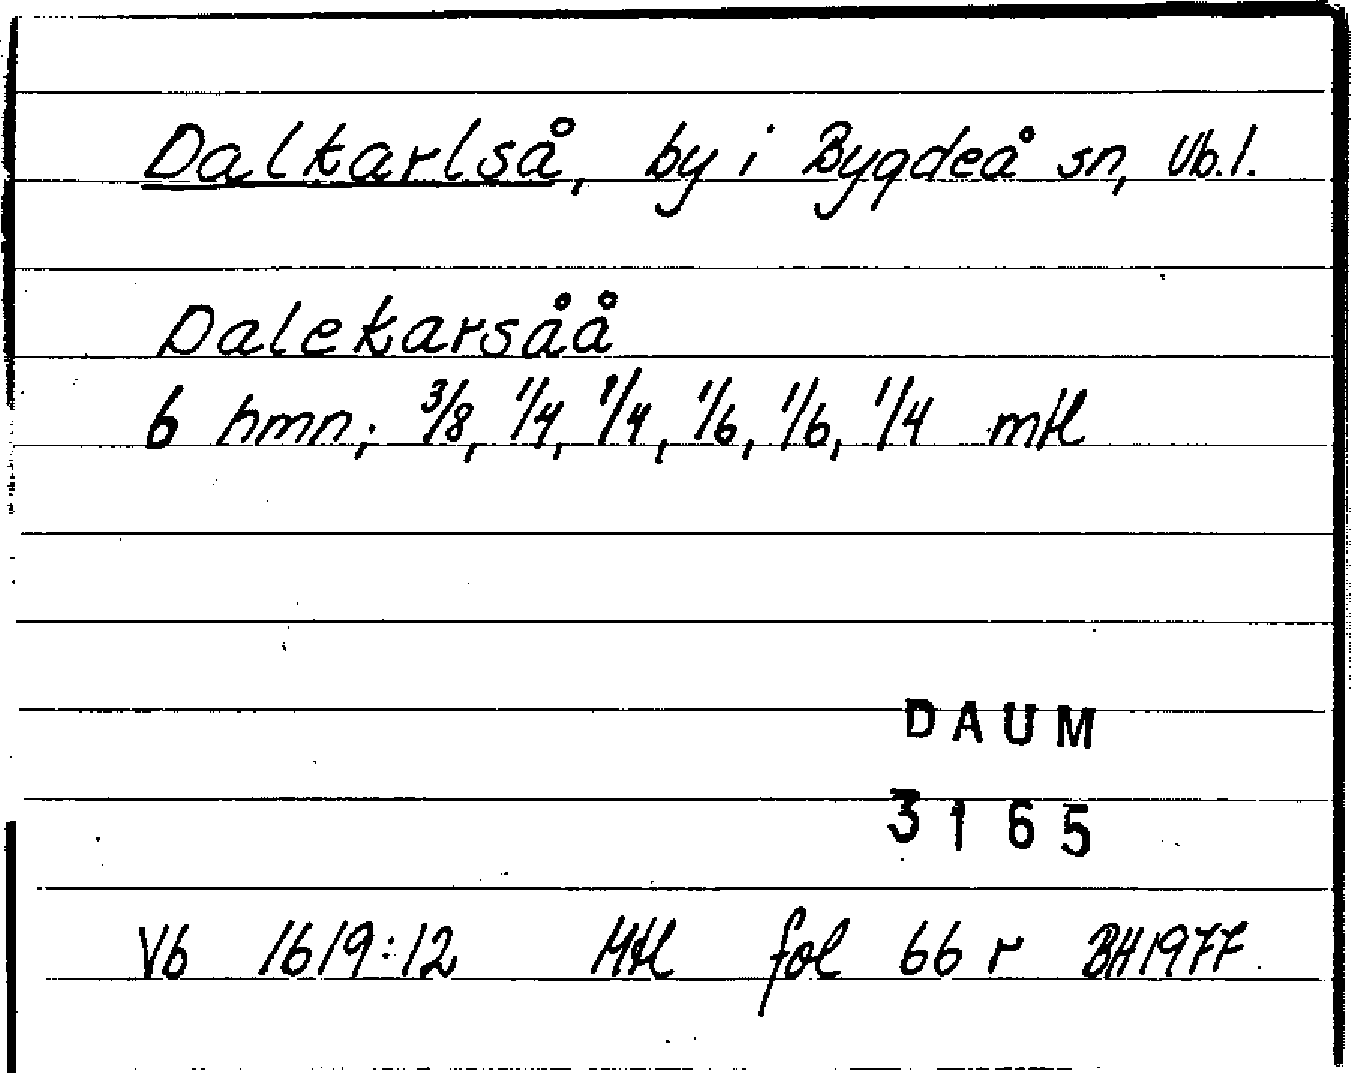 Dalkarlså, by i Bygdeå sn, Vb.l.
Dalekarsåå
6 hmn; 3/8, 1/4, 1/4, 1/6, 1/6, 1/4 mtl
DAUM
3165
Vb 1619:12 Mtl fol 66 r BH1977